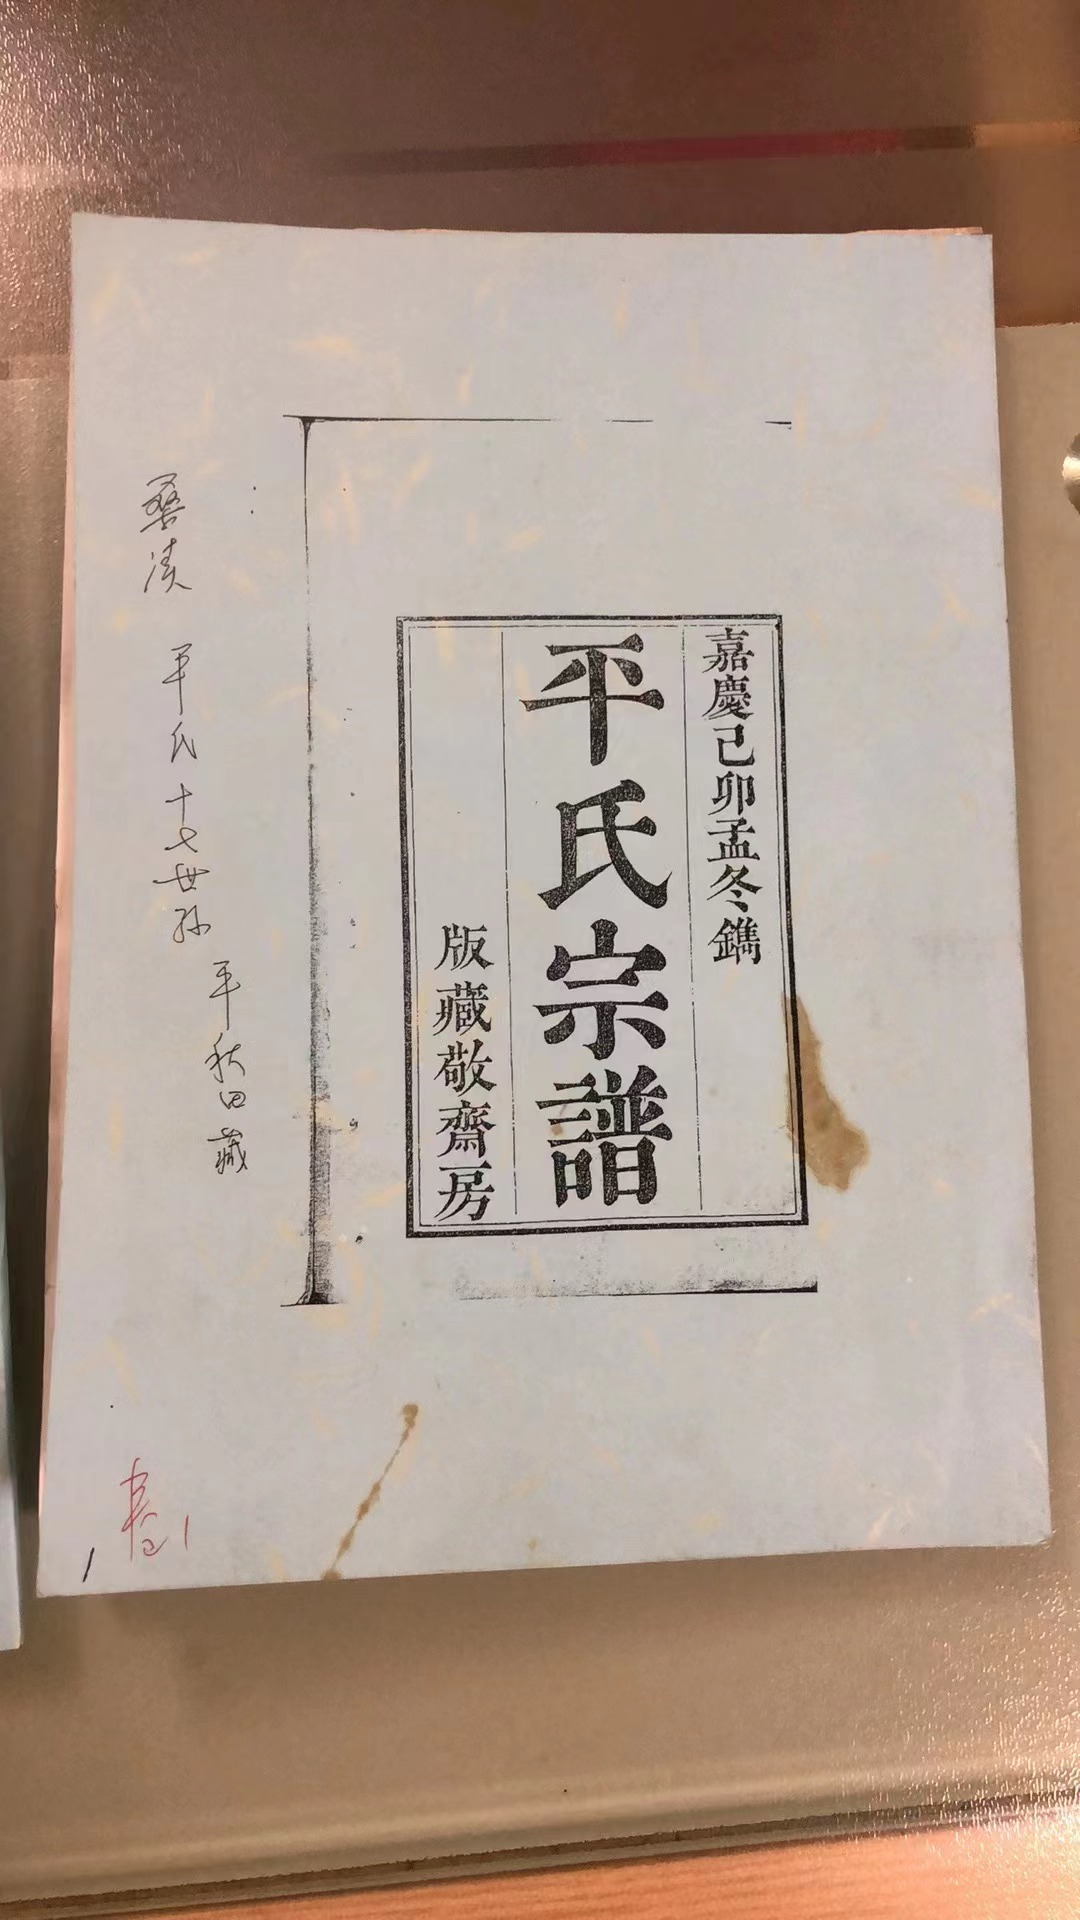 嘉慶己卯孟冬鐫
平氏宗譜
版藏敬齋房
平氏十七世孫
平秋田藏
1